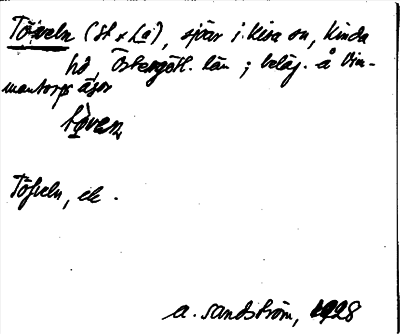 Töveln (St x La), sjöar i Kisa sn, Kinda
hd, Östergötl. län; beläg. å Vin-
mantorps ägor
tö̀ven
Töfveln, ek.
A. Sandström, 1928